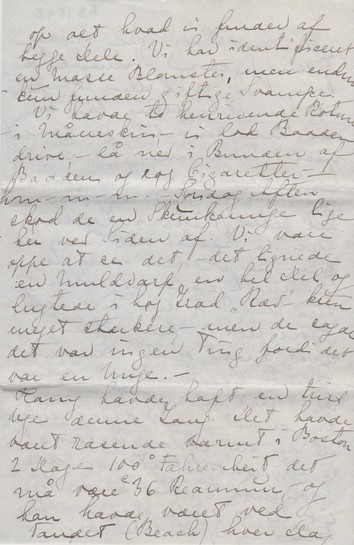 op alt hvad vi finder af
begge dele. Vi har identificeret
en Masse Blomster, men endnu
kun funden giftige Svampe
Vi havde to henrivende Roture
i Måneskin, - vi lod Baaden
drive, - lå ned i Bunden af
Baaden og røg Cigaretter. -
hm - m - m. - Søndag Aften
skød de en Skunkunge lige
her ved Siden af. Vi vare
oppe at se det, - det lignede
en Muldvarp en hel Del og
lugtede i høj Grad "Ræv" kun
meget stærkere, - men de sagde
det var ingen Ting fordi det
var en Unge. -
Harry havde haft en
Uge denne Gang. Det havde
været rasende varmt i Boston
2 Dage 100° Fahrenheit, det
må være 36° Reaumur, og
han havde været ved
Vandet (Beach) hver Dag